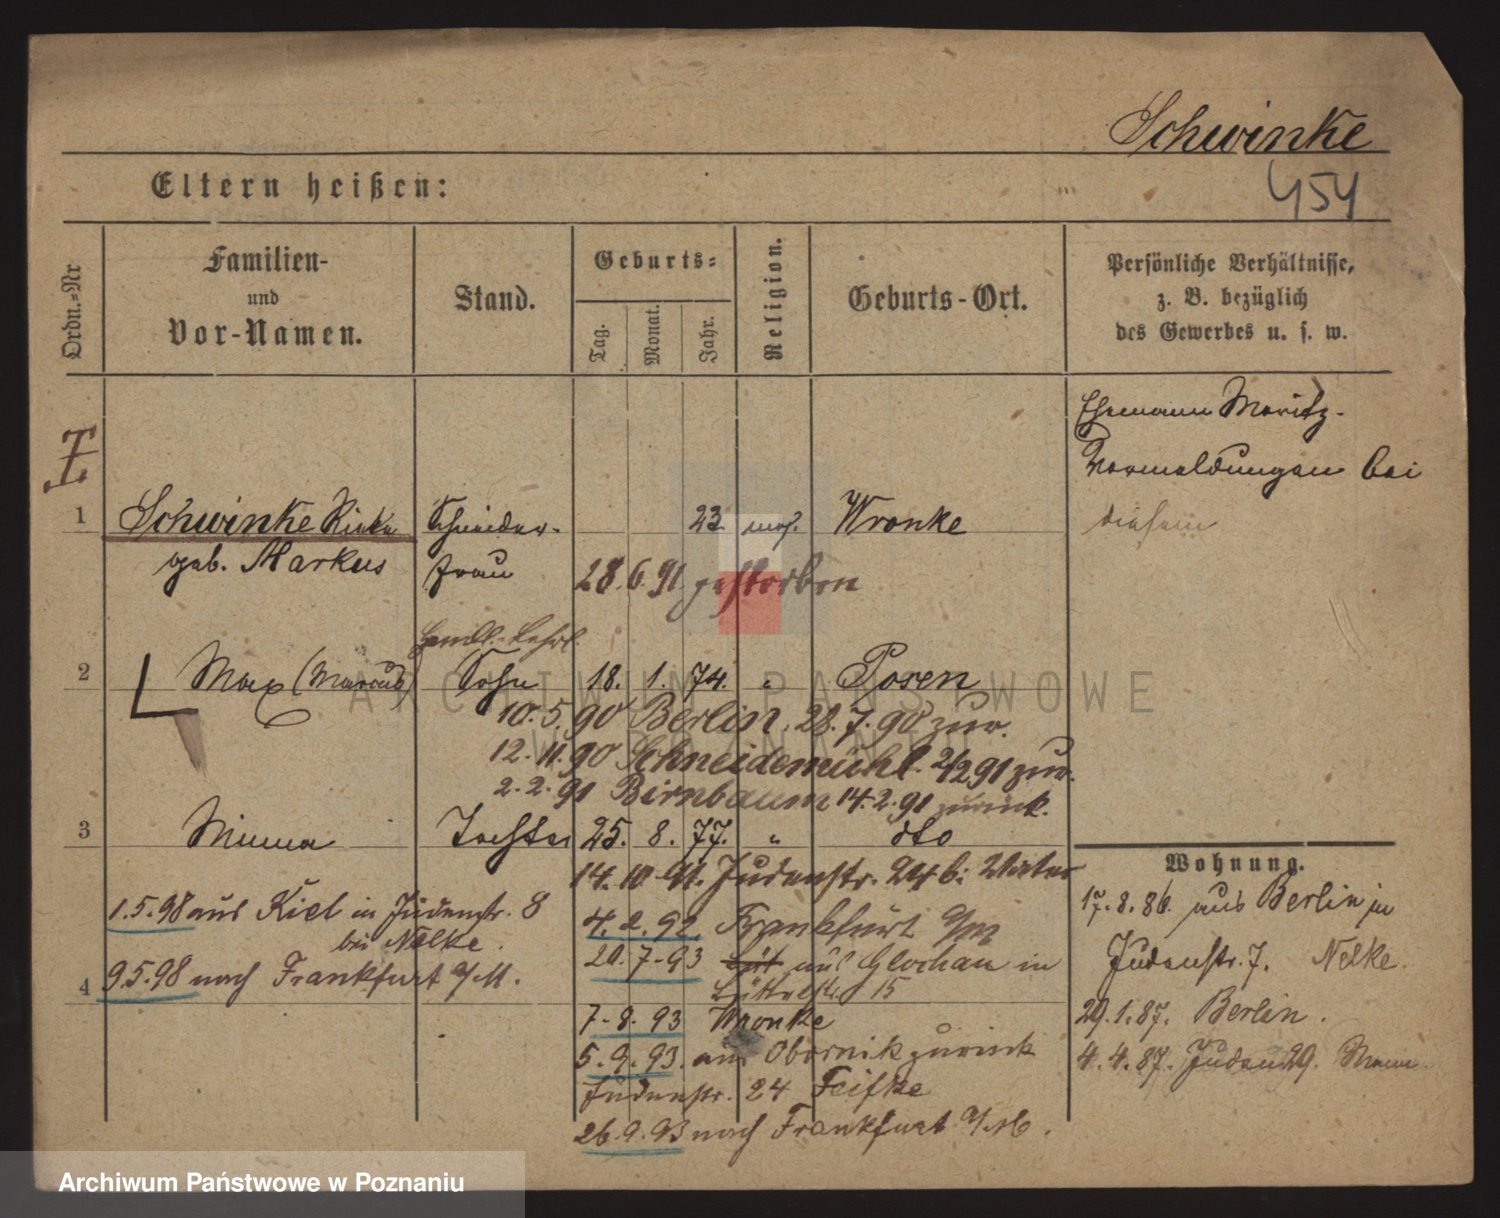 Schwinke
454
Eltern heißen:
Ordn.=Nr
Familien-
und
Vor-Namen.
Stand.
Geburts=
Tag.
Monat.
Jahr.
Religion.
Geburts-Ort.
Persönliche Verhältnisse,
z. B. bezüglich
des Gewerbes u. s. w.
Ehemann Moritz.
Vormeldungen bei
diesem
1 Schwinke Rieke Schneider- 23 mos. Wronke
geb. Markus frau 28.6.91. gestorben
Handl. Lehrl.
2 Max (Marcus) Sohn 18. 1. 74. " Posen
10.5.90 Berlin. 28.7.90 zur.
12.11.90 Schneidemühl. 2/2 91 zur.
2.2.91 Birnbaum 14.2.91 zurück.
3 Minna Tochter 25. 8. 77. " dto
14.10.91. Judenstr. 24 b:
4.2.92 Frankfurt a/M
20.7.93 aus Glochau in
15
7.8.93 Wronke
5.9.93. aus Obornik zurück
Judenstr. 24 Feifke
26.9.93 nach Frankfurt a/M.
1.5.98 aus Kiel in Judenstr. 8
bei Nelke.
4 9.5.98 nach Frankfurt a/M.
Wohnung.
17.8.86. aus Berlin in
Judenstr. 7. Nelke.
29.1.87. Berlin.
4.4.87. Juden 29.
ARCHIWUM PAŃSTWOWE
W POZNANIU
Archiwum Państwowe w Poznaniu